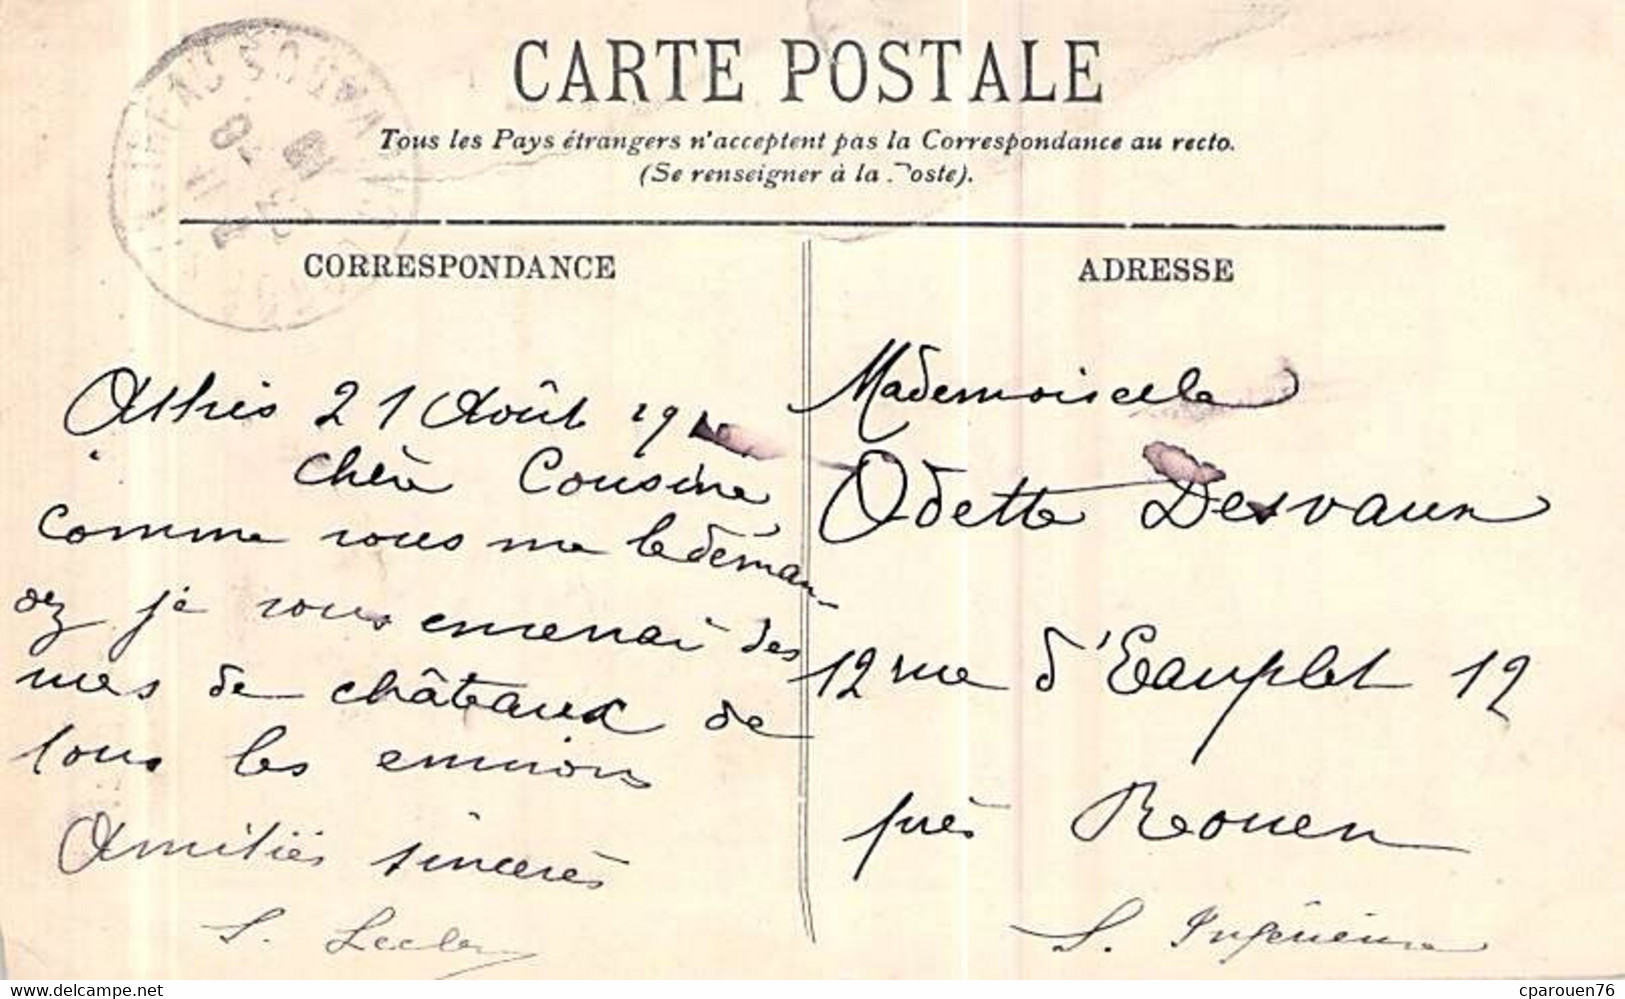 CARTE POSTALE
Tous les Pays étrangers n'acceptent pas la Correspondance au recto.
(Se renseigner à la Poste).
CORRESPONDANCE
Athis 21 Août
Chère Cousine
comme vous me le deman-
dez je vous enverrai des
vues de châteaux de
tous les environs
Amitiés sincères
S. Lecler
ADRESSE
Mademoiselle
Odette Desvaux
12 rue d'Eauplet 12
près Rouen
S. Inférieure
cparouen76